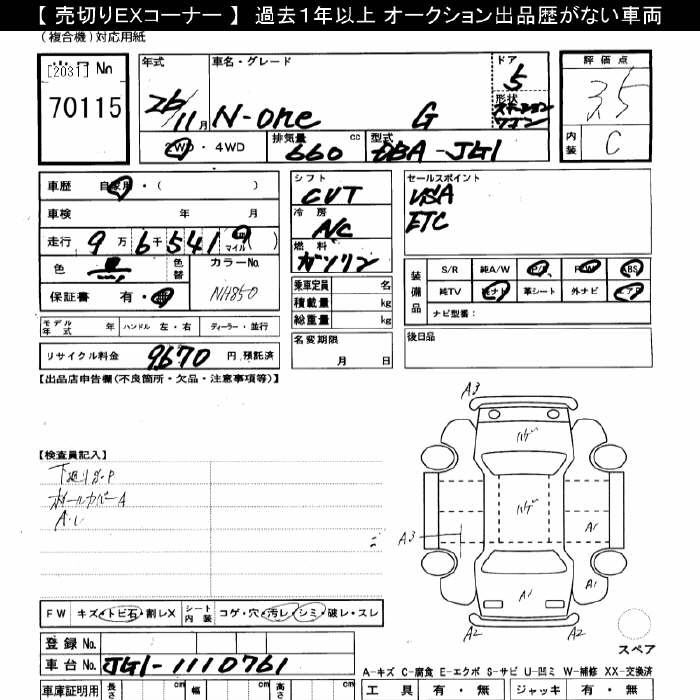 【 売切りEXコーナー 】 過去１年以上 オークション出品歴がない車両
(複合機)対応用紙
[2031] No
70115
年式 26/11月
車名・グレード N-one G
ドア 5
形状 ステーションワゴン
評価点 3.5
内装 C
2WD・4WD
排気量 660 cc
型式 DBA-JG1
車歴 自家用・( )
車検 年 月
走行 9万6千541 km マイル( )
色 黒 色替 カラーNo. NH850
保証書 有・無
モデル年式 年 ハンドル 左・右 ディーラー・並行
リサイクル料金 9670 円 預託済
シフト CVT
冷房 A/C
燃料 ガソリン
乗車定員 名
積載量 kg
総重量 kg
名変期限 月 日
セールスポイント
VSA
ETC
装備品 S/R 純A/W P/S P/W ABS
純TV 純ナビ 革シート 外ナビ エアB
ナビ型番:
後日品
【出品店申告欄(不良箇所・欠品・注意事項等)】
【検査員記入】
下廻りサ・P
ホイールカバーA
A・U
A3
ハゲ
ハゲ
A3
A1
A1
A1
A2 A2
スペア
FW キズ・トビ石・割レX シート内装 コゲ・穴・汚レ・シミ・破レ・スレ
登録No.
車台No. JG1-1110761
車庫証明用 長さ cm 幅 cm 高さ cm
A-キズ C-腐食 E-エクボ S-サビ U-凹ミ W-補修 XX-交換済
工具 有・無 ジャッキ 有・無